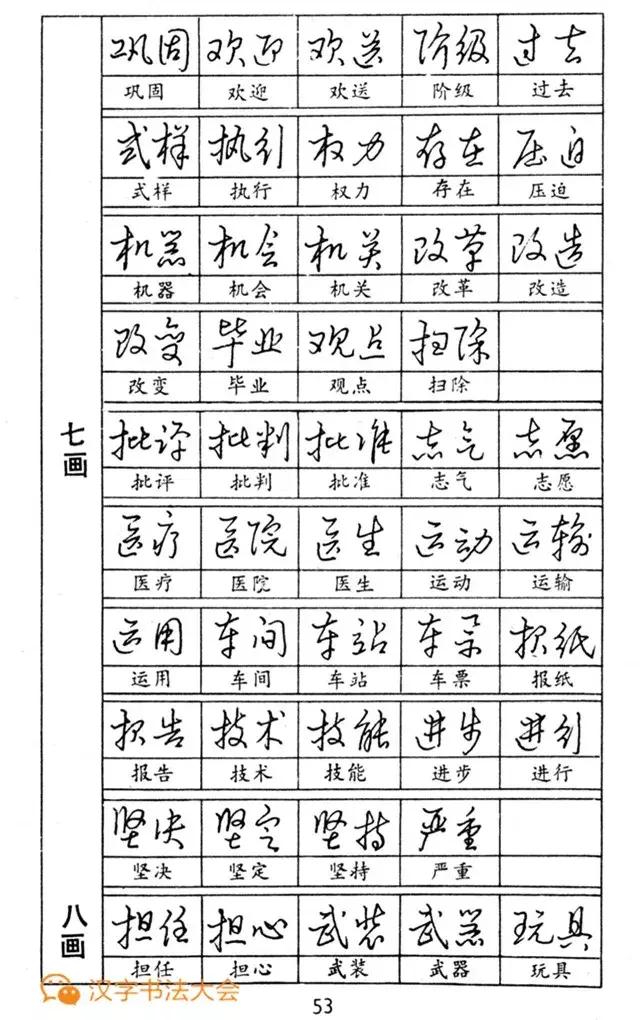 巩固 欢迎 欢送 阶级 过去
巩固 欢迎 欢送 阶级 过去
式样 执行 权力 存在 压迫
式样 执行 权力 存在 压迫
机器 机会 机关 改革 改造
机器 机会 机关 改革 改造
改变 毕业 观点 扫除
改变 毕业 观点 扫除
七画
批评 批判 批准 志气 志愿
批评 批判 批准 志气 志愿
医疗 医院 医生 运动 运输
医疗 医院 医生 运动 运输
运用 车间 车站 车票 报纸
运用 车间 车站 车票 报纸
报告 技术 技能 进步 进行
报告 技术 技能 进步 进行
坚决 坚定 坚持 严重
坚决 坚定 坚持 严重
八画
担任 担心 武装 武器 玩具
担任 担心 武装 武器 玩具
汉字书法大会
53